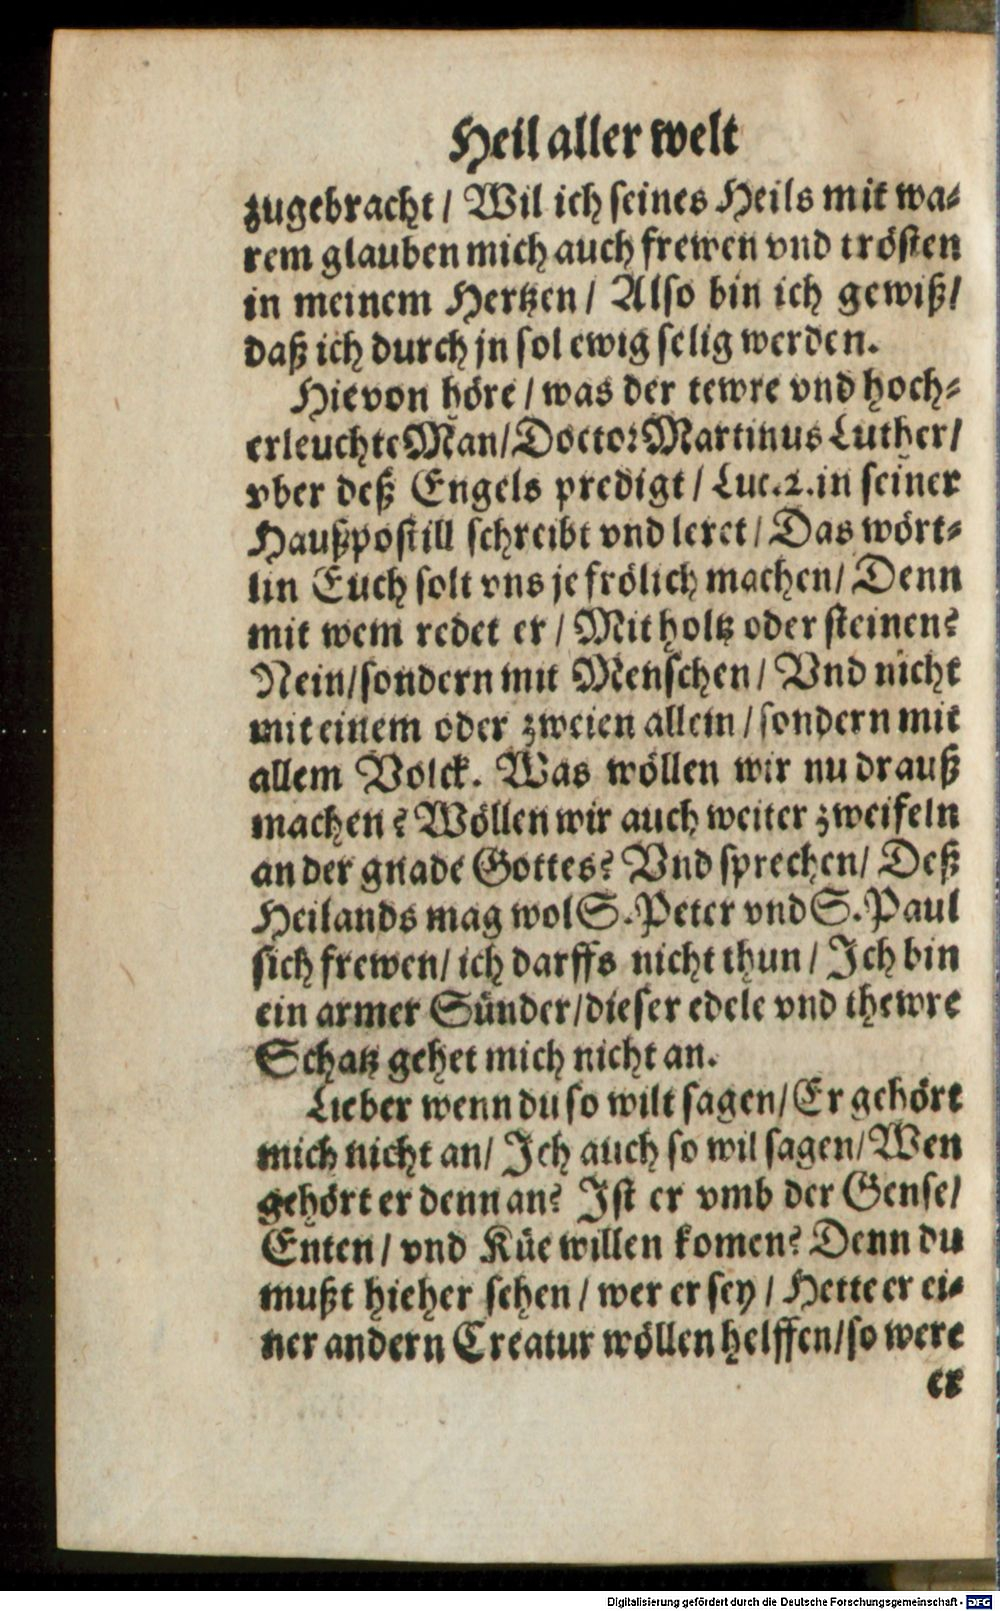 Heil aller welt
zugebracht / Wil ich seines Heils mit wa-
rem glauben mich auch frewen vnd trösten
in meinem Hertzen / Also bin ich gewiß/
daß ich durch jn sol ewig selig werden.
Hievon höre / was der tewre vnd hoch-
erleuchte Man/ Doctor Martinus Luther/
vber deß Engels predigt / Luc. 2. in seiner
Haußpostill schreibt vnd leret / Das wört-
lin Euch solt vns je frölich machen/ Denn
mit wem redet er / Mit holtz oder steinen?
Nein/ sondern mit Menschen / Vnd nicht
mit einem oder zweien allein / sondern mit
allem Volck. Was wöllen wir nu drauß
machen? Wöllen wir auch weiter zweifeln
an der gnade Gottes? Vnd sprechen/ Deß
Heilands mag wol S. Peter vnd S. Paul
sich frewen/ ich darffs nicht thun / Ich bin
ein armer Sünder/ dieser edele vnd thewre
Schatz gehet mich nicht an.
Lieber wenn du so wilt sagen/ Er gehört
mich nicht an/ Ich auch so wil sagen/ Wen
gehört er denn an? Ist er vmb der Gense/
Enten / vnd Küe willen komen? Denn du
mußt hieher sehen / wer er sey / Hette er ei-
ner andern Creatur wöllen helffen/ so were
er
Digitalisierung gefördert durch die Deutsche Forschungsgemeinschaft - DFG